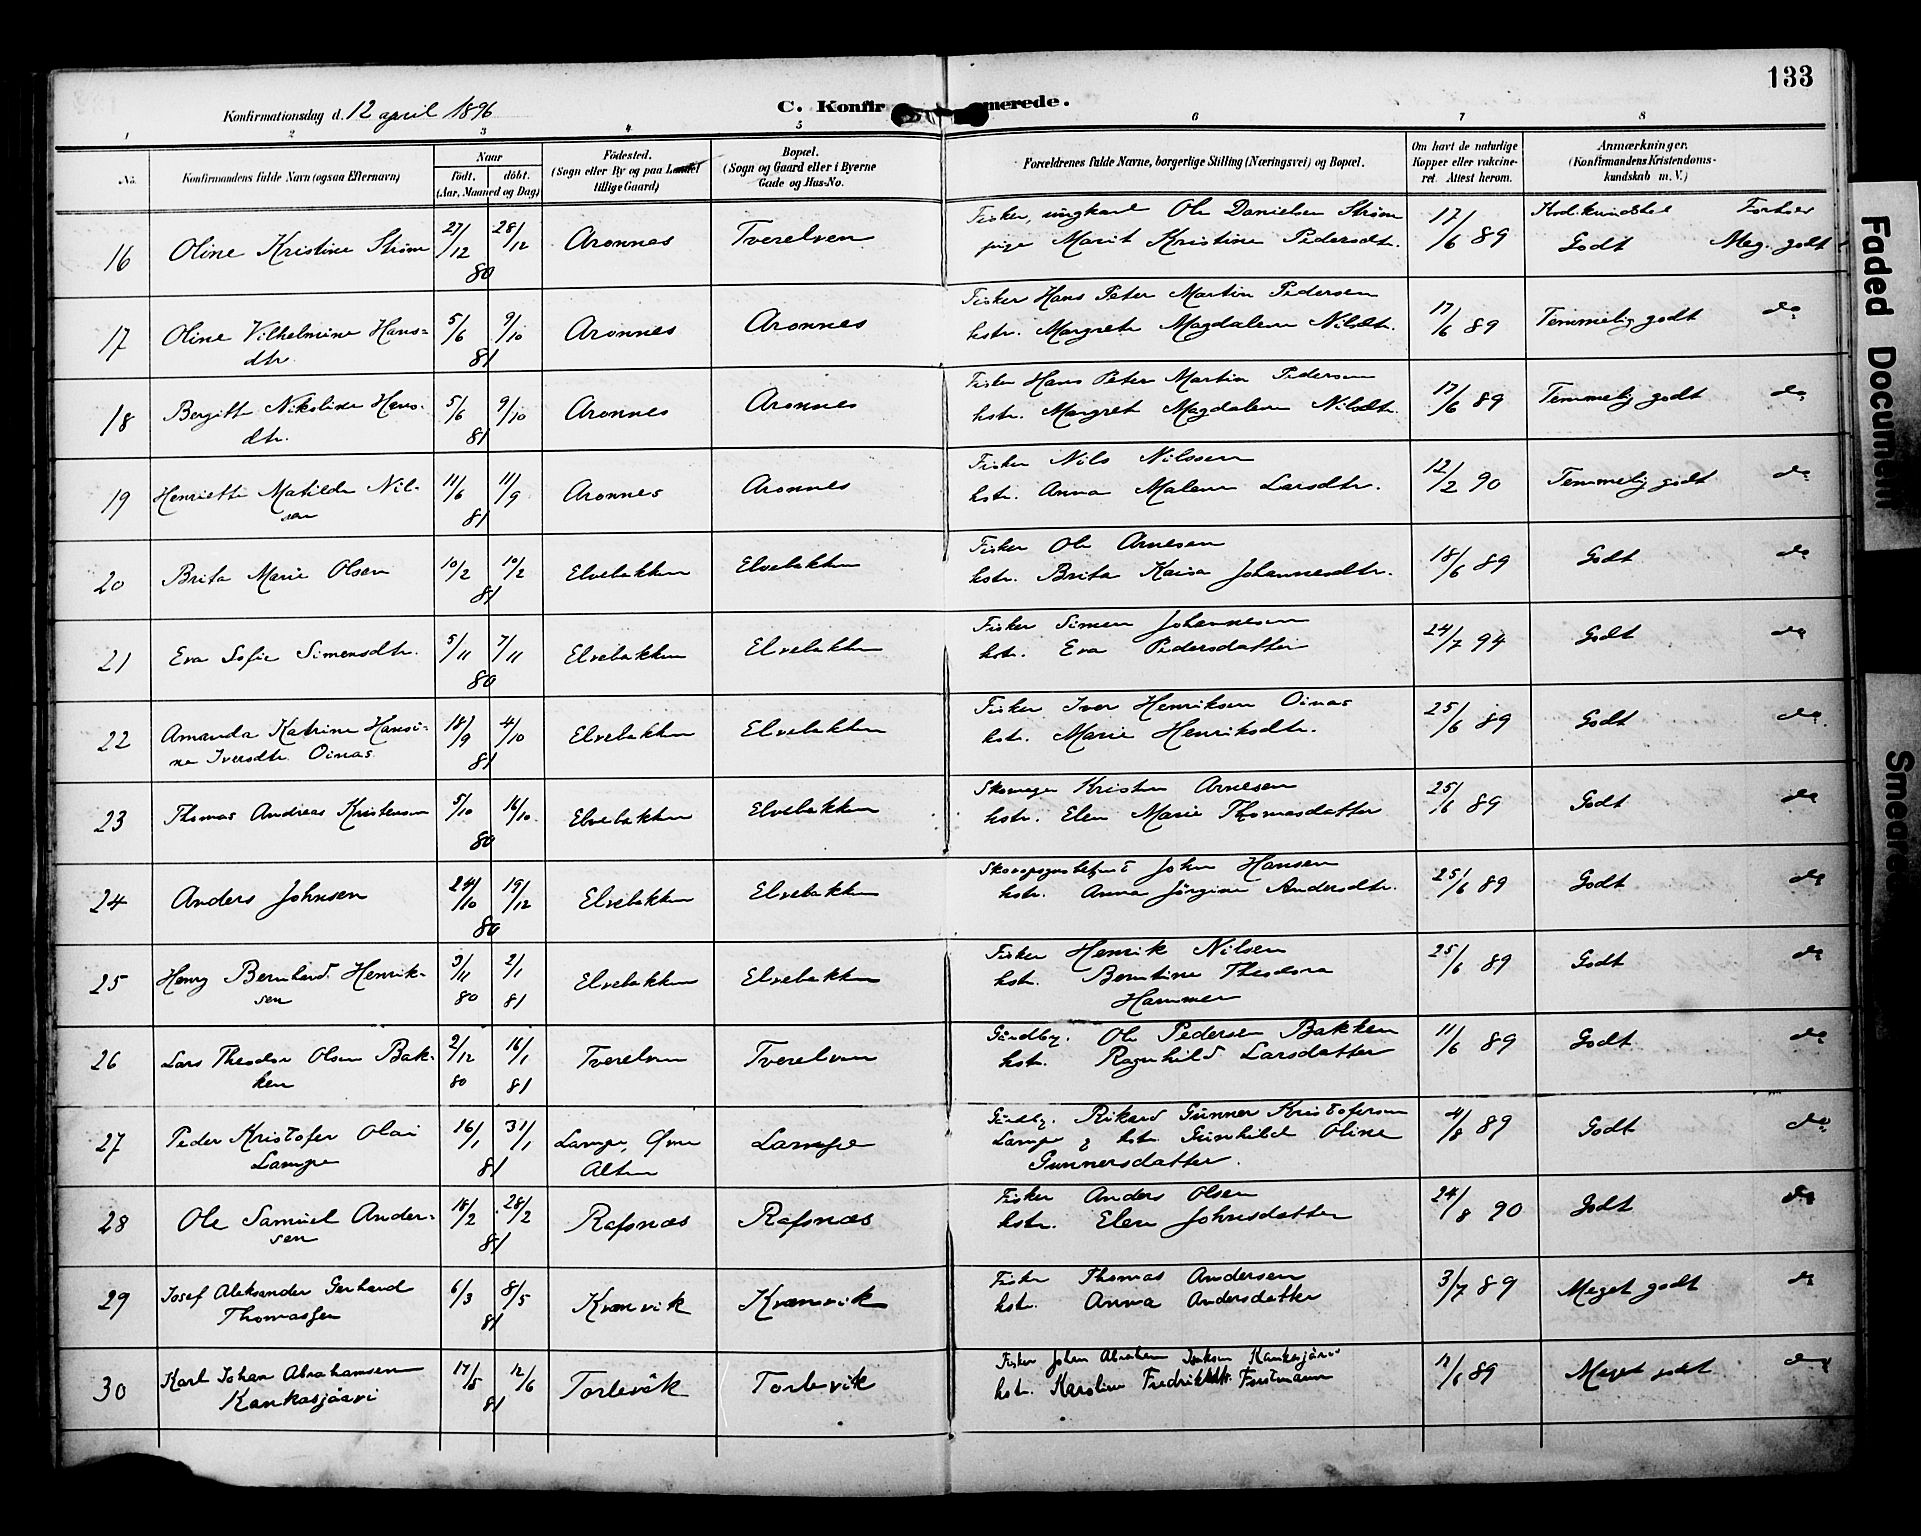 133
C. Konfirmerede.
Konfirmationsdag d. 12 april 1896
1 2 3 4 5 6 7 8
No. Konfirmandens fulde Navn (ogsaa Efternavn) Naar födt. döbt. (Aar, Maaned og Dag) Födested. (Sogn eller By og paa Landet tillige Gaard) Bopæl. (Sogn og Gaard eller i Byerne Gade og Hus-No. Forældrenes fulde Navne, borgerlige Stilling (Næringsvei) og Bopæl. Om havt de naturlige Kopper eller vakcineret. Attest herom. Anmærkninger. (Konfirmandens Kristendomskundskab m. V.)
Fisker, ungkarl Ole Danielsen Strøm Forhor
16 Oline Kristine Strøm 27/12 28/12 80 Aronnes Tverelven pige Marit Kristine Pedersdtr. 17/6 89 Godt Meg. godt
Fisker Hans Peter Martin Pedersen
17 Oline Vilhelmine Hans= 5/6 9/10 81 Aronnes Aronnes hstr. Margrete Magdalene Nilsdtr. 17/6 89 Temmelig godt do
dtr.
Fisker Hans Peter Martin Pedersen
18 Bergitte Nikoline Hans- 5/6 9/10 81 Aronnes Aronnes hstr. Margret Magdalene Nilsdtr. 17/6 89 Temmelig godt do
dtr.
Fisker Nils Nilssen
19 Henriette Matilde Nil- 11/6 11/9 81 Aronnes Aronnes hstr. Anna Malene Larsdtr. 12/2 90 Temmelig godt do
sen
Fisker Ole Arnesen
20 Brita Marie Olsen 10/2 10/2 81 Elvebakken Elvebakken hstr. Brita Kaisa Johannesdtr. 18/6 89 Godt do
Fisker Simen Johannesen
21 Eva Sofie Simensdtr. 5/11 7/11 80 Elvebakken Elvebakken hstr. Eva Pedersdatter 24/7 94 Godt do
Fisker Iver Henriksen Oinas
22 Amanda Katrine Hansi- 18/9 4/10 81 Elvebakken Elvebakken hstr. Marie Henriksdtr. 25/6 89 Godt do
ne Iversdtr. Oinas
Skomager Kristen Arnesen
23 Thomas Andreas Kristensen 5/10 16/10 80 Elvebakken Elvebakken hstr. Elen Marie Thomasdatter 25/6 89 Godt do
John Hansen
24 Anders Johnsen 24/10 19/12 80 Elvebakken Elvebakken hstr. Anna Jörgine Andersdtr. 25/6 89 Godt do
Fisker Henrik Nilsen
25 Henry Bernhard Henrik- 3/11 80 2/1 81 Elvebakken Elvebakken hstr. Berntine Theodora 25/6 89 Godt do
sen Hammer
Gårdbr. Ole Pedersen Bakken
26 Lars Theodor Olsen Bak- 2/12 80 16/1 81 Tverelven Tverelven hstr. Ragnhild Larsdatter 11/6 89 Godt do
ken
Gårdbr. Rikard Gunner Kristofersen
27 Peder Kristofer Olai 16/1 31/1 81 Lampe, Øvre Lampe Lampe og hstr. Gunhild Oline 4/8 89 Godt do
Lampe Alten Gunnersdatter.
Fisker Anders Olsen
28 Ole Samuel Ander- 18/2 28/2 81 Rafsnæs Rafsnæs hstr. Elen Johnsdatter 24/8 90 Godt do
sen
Fisker Thomas Andersen
29 Josef Aleksander Gerhard 6/3 8/5 81 Kvænvik Kvænvik hstr. Anna Andersdatter 3/7 89 Meget godt do
Thomassen
Fisker Johan Abraham Isaksen Kankasjärvi
30 Karl Johan Abrahamsen 17/5 12/6 81 Torlevik Torlevik hstr. Karoline Fredriksdtr. Forstmann 11/6 89 Meget godt do
Kankasjärvi
Faded Document
Smeared